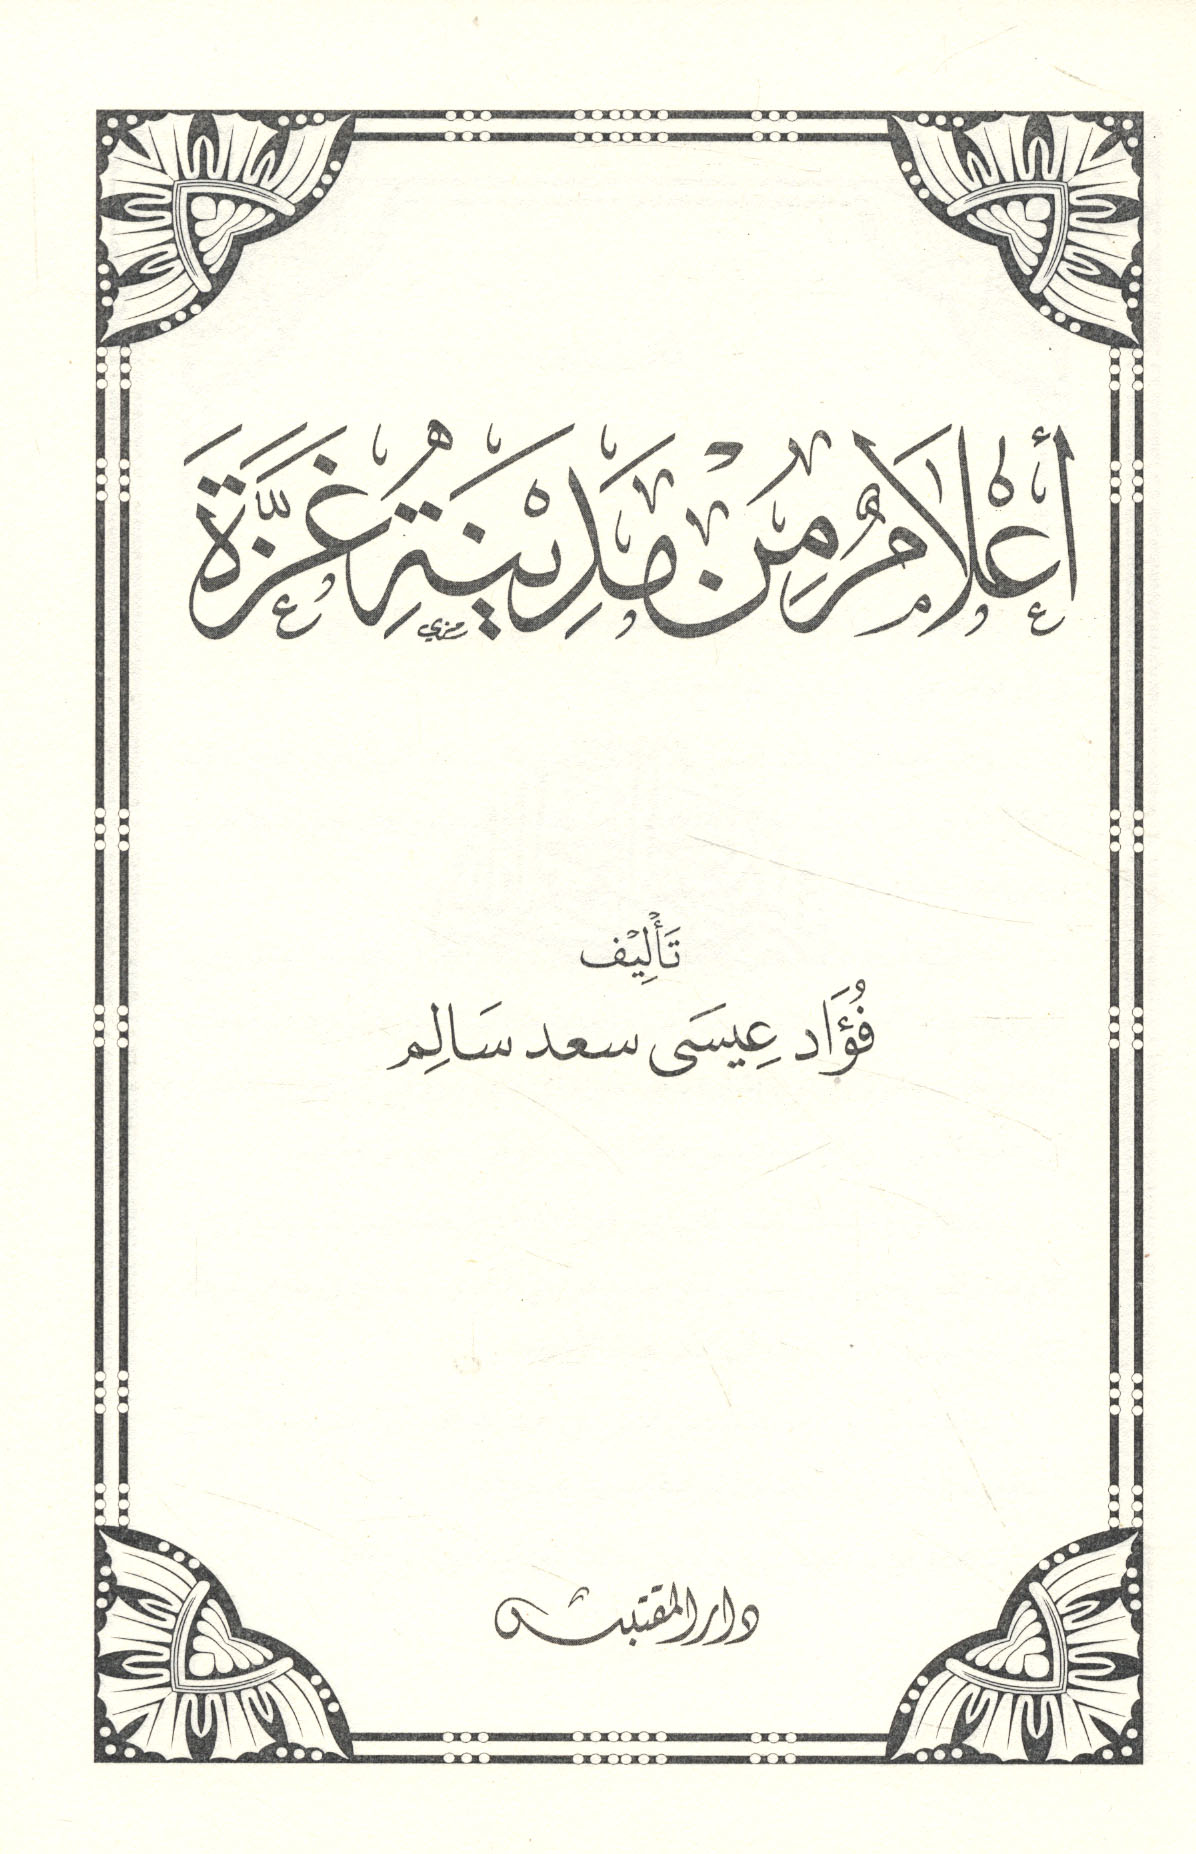 أَعْلَامٌ مِنْ مَدِينَةِ غَزَّةَ
تَأْلِيْف
فُؤَاد عِيسَى سعد سَالِم
دار المقتبس